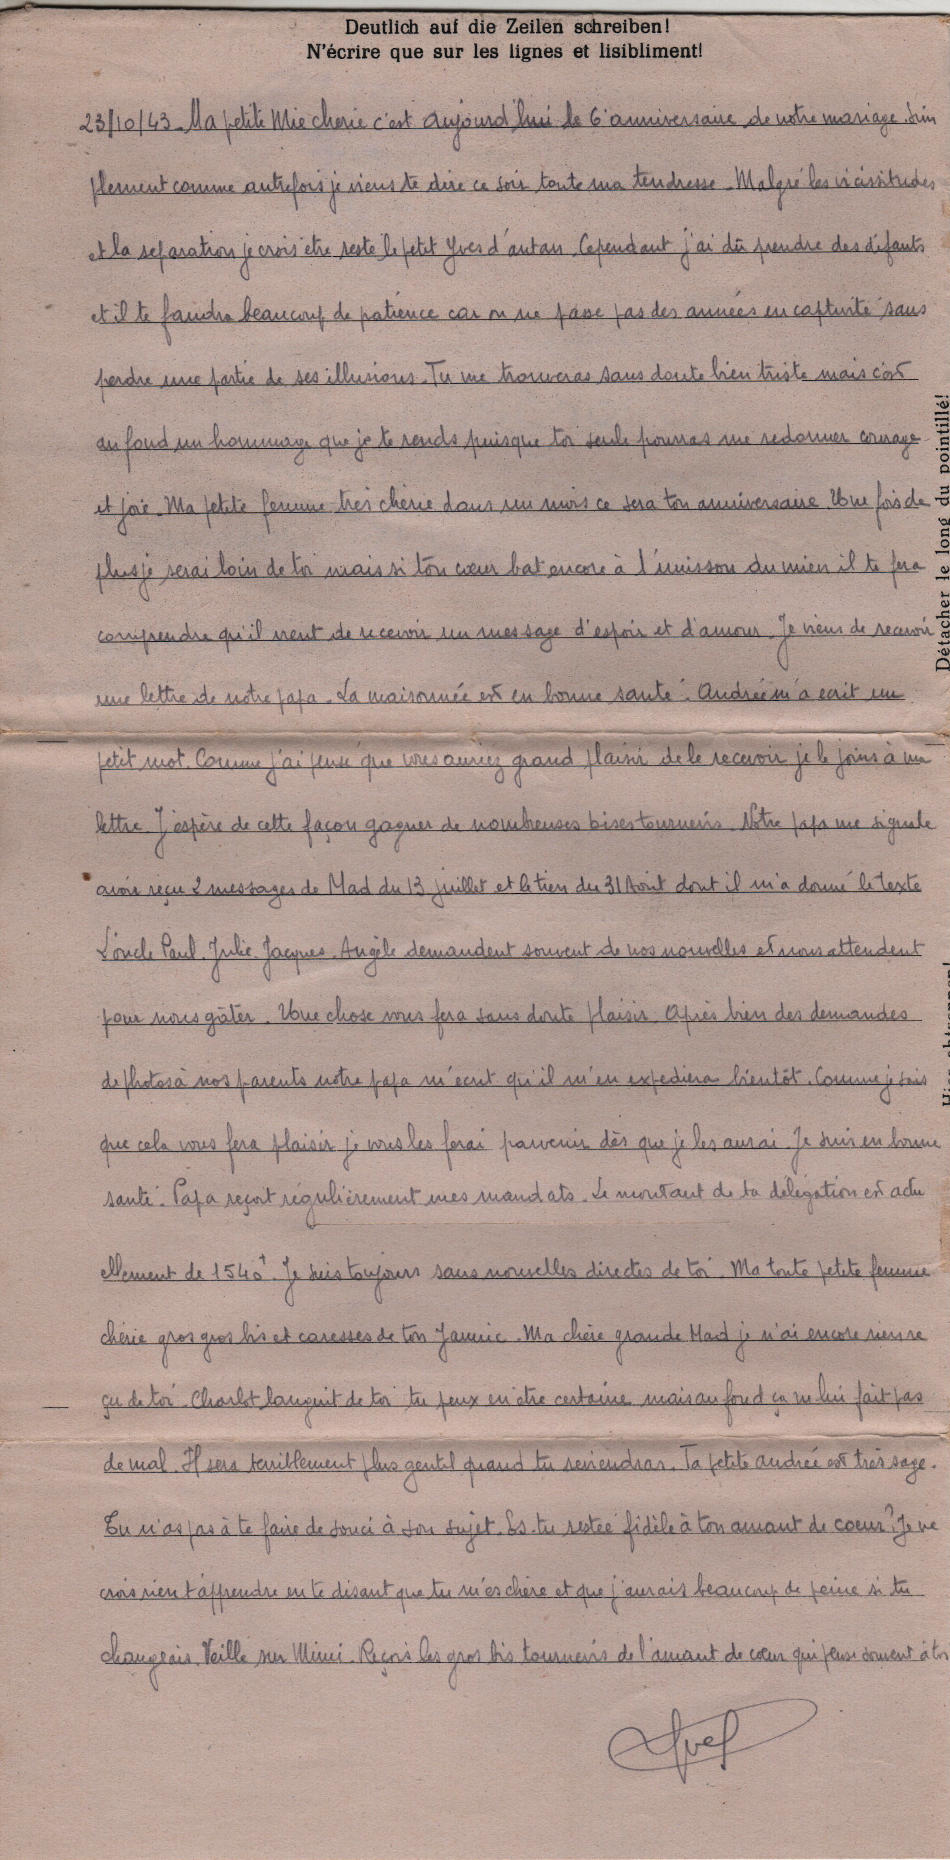 Deutlich auf die Zeilen schreiben!
N'écrire que sur les lignes et lisibliment!
23/10/43 _ Ma petite Mie cherie c'est aujourd'hui le 6e anniversaire de notre mariage. Sim
plement comme autrefois je viens te dire ce soir toute ma tendresse _ Malgré les vicissitudes
et la separation je crois etre resté le petit Yves d'antan. Cependant j'ai dû prendre des défauts
et il te faudra beaucoup de patience car on ne passe pas des années en captivité sans
perdre une partie de ses illusions. Tu me trouveras sans doute bien triste mais c'est
au fond un hommage que je te rends puisque toi seule pourras me redonner courage
et joie. Ma petite femme très chérie dans un mois ce sera ton anniversaire. Une fois de
plus je serai loin de toi mais si ton cœur bat encore à l'unisson du mien il te fera
comprendre qu'il vient de recevoir un message d'espoir et d'amour. Je viens de recevoir
une lettre de notre papa. La maisonnée est en bonne santé. Andrée m'a ecrit un
petit mot. Comme j'ai pensé que vous auriez grand plaisir de le recevoir je le joins à ma
lettre. J'espère de cette façon gagner de nombreuses bises. Notre papa me signale
avoir reçu 2 messages de Mad du 13 juillet et le tien du 31 Août dont il m'a donné le texte
L'oncle Paul. Julie. Jacques. Angèle demandent souvent de nos nouvelles et nous attendent
pour nous gâter. Une chose vous fera sans doute plaisir. Après bien des demandes
de photos à nos parents notre papa m'écrit qu'il m'en expediera bientôt. Comme je sais
que cela vous fera plaisir je vous les ferai parvenir dès que je les aurai. Je suis en bonne
santé. Papa reçoit régulièrement mes mandats. Le montant de ta délégation est actu
ellement de 1540f. Je suis toujours sans nouvelles directes de toi. Ma toute petite femme
chérie gros gros bis et caresses de ton Jannic. Ma chère grande Mad je n'ai encore rien re
çu de toi. Charlot languit de toi tu peux en être certaine mais au fond ça ne lui fait pas
de mal. Il sera terriblement plus gentil quand tu reviendras. Ta petite Andrée est très sage.
Tu n'as pas à te faire de souci à son sujet. Es-tu restée fidèle à ton amant de coeur? Je ne
crois rien t'apprendre en te disant que tu m'es chère et que j'aurais beaucoup de peine si tu
changeais. Veille sur Mimi. Reçois les gros bis de l'amant de cœur qui pense souvent à toi
Yves
Détacher le long du pointillé!